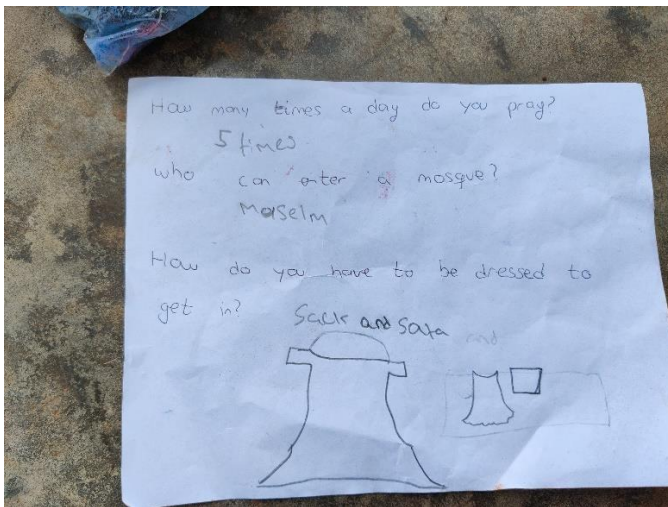 How many times a day do you pray?
5 times
who can enter a mosque?
Moselm
How do you have to be dressed to
get in?
Sack and Sata and